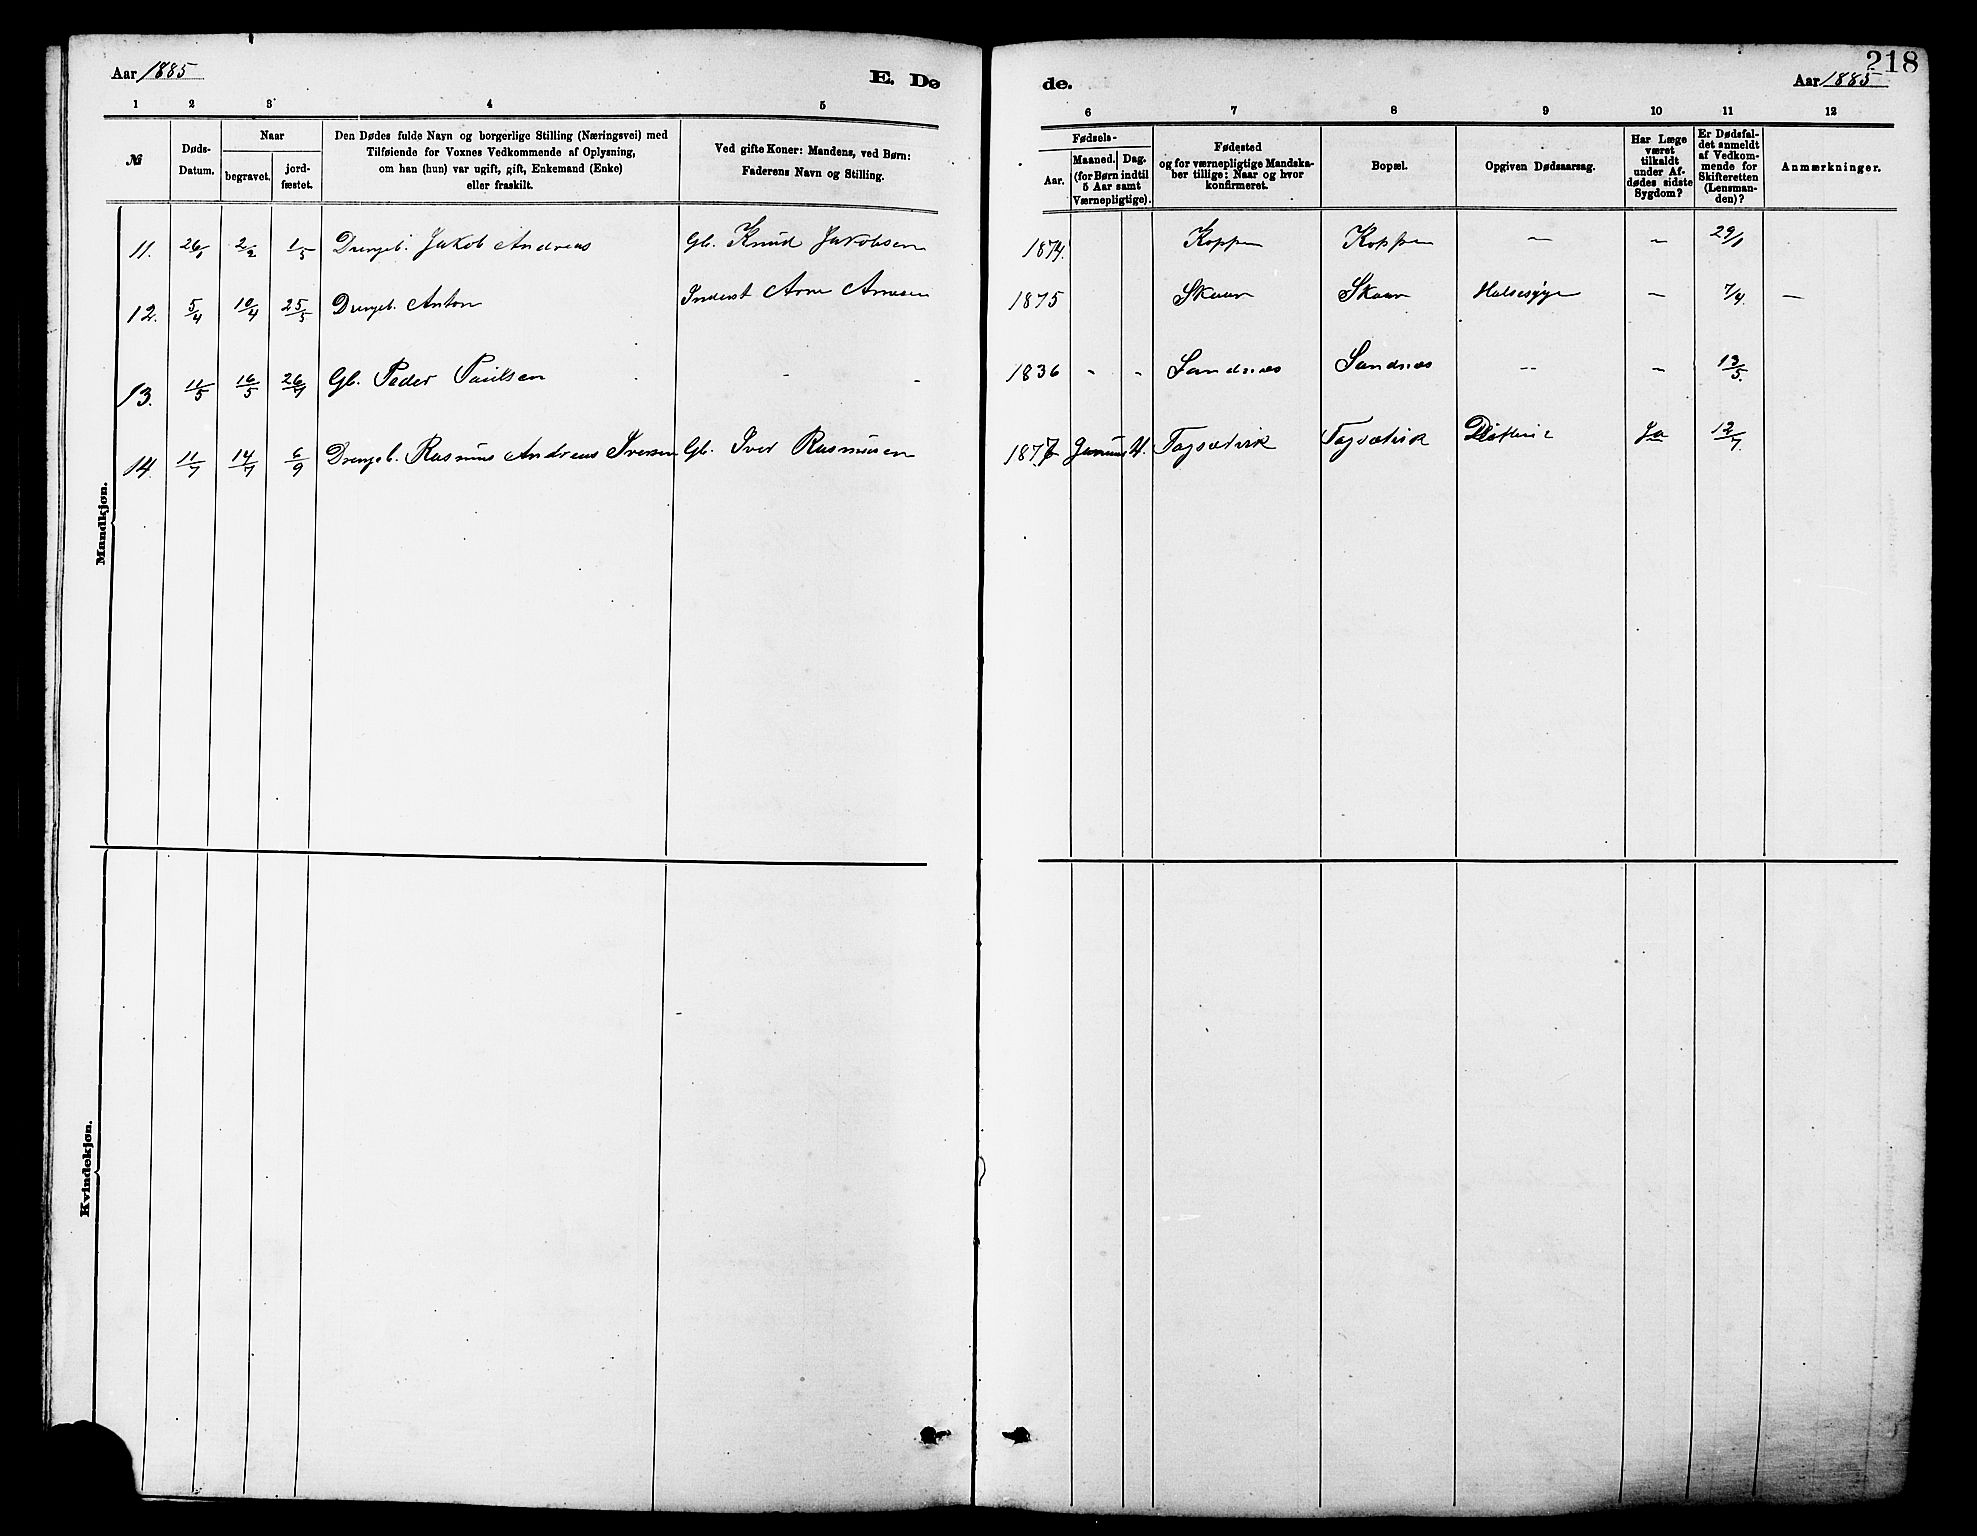 218
Aar 1885
E. Dø
de.
Aar 1885
1 2 3 4 5 6 7 8 9 10 11 12
№
Døds-
Datum.
Naar
begravet.
jord-
fæstet.
Den Dødes fulde Navn og borgerlige Stilling (Næringsvei) med
Tilføiende for Voxnes Vedkommende af Oplysning,
om han (hun) var ugift, gift, Enkemand (Enke)
eller fraskilt.
Ved gifte Koner: Mandens, ved Børn:
Faderens Navn og Stilling.
Fødsels-
Aar.
Maaned. Dag.
(for Børn indtil
5 Aar samt
Værnepligtige).
Fødested
og for værnepligtige Mandska-
ber tillige: Naar og hvor
konfirmeret.
Bopæl.
Opgiven Dødsaarsag.
Har Læge
været
tilkaldt
under Af-
dødes sidste
Sygdom?
Er Dødsfal-
det anmeldt
af Vedkom-
mende for
Skifteretten
(Lensman-
den)?
Anmærkninger.
Mandkjøn.
11. 26/1 2/2 1/5 Drengeb. Jakob Andreas Gb. Knud Jakobsen 1874. Koppen Koppen — — 29/1
12. 5/4 10/4 25/5 Drengeb. Anton Inderst Arne Arnesen 1875 Skaar Skaar Halsesyge — 7/4. —
13. 11/5 16/5 26/7 Gb. Peder Paulsen - - 1836 - - Sandnæs Sandnæs -- — 13/5.
14. 11/7 14/7 6/9 Drengeb. Rasmus Andreas Iversen Gb. Iver Rasmussen 1877 Januar Ja 12/7.
Kvindekjøn.